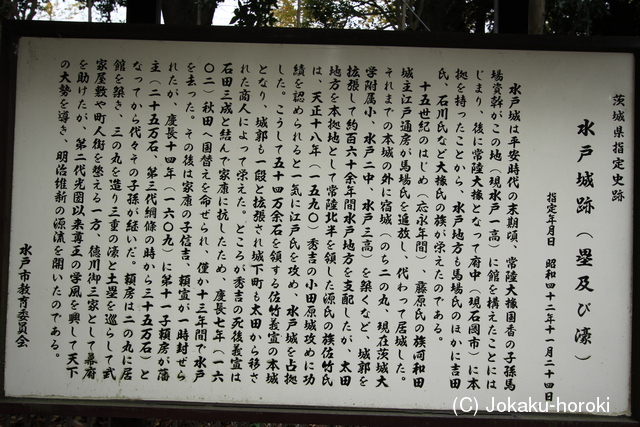 茨城県指定史跡
水戸城跡（塁及び濠）
指定年月日 昭和四十二年十一月二十四日
水戸城は平安時代の末期頃、常陸大掾国香の子孫馬
場資幹がこの地（現水戸一高）に館を構えたことには
じまり、後に常陸大掾となって府中（現石岡市）に本
拠を持ったことから、水戸地方も馬場氏のほかに吉田
氏、石川氏など大掾氏の族が栄えたのである。
十五世紀のはじめ（応永年間）、藤原氏の族河和田
城主江戸通房が馬場氏を追放し、代わって居城した。
それまでの本城の外に宿城（のち二の丸、現在茨城大
学附属小、水戸二中、水戸三高）を築くなど、城郭を
拡張して約百六十余年間水戸地方を支配したが、太田
地方を本拠地として常陸北半を領した源氏の族佐竹氏
は、天正十八年（一五九〇）秀吉の小田原城攻めに功
績を認められると一気に江戸氏を攻め、水戸城を占拠
した。こうして五十四万余石を領する佐竹義宣の本城
となり、城郭も一段と拡張され城下町も太田から移さ
れた商人によって栄えた。ところが秀吉の死後義宣は
石田三成と結んで家康に抗したため、慶長七年（一六
〇二）秋田へ国替えを命ぜられ、僅か十三年間で水戸
を去った。その後は家康の子信吉、頼宣が一時封ぜら
れたが、慶長十四年（一六〇九）に第十一子頼房が藩
主（二十五万石、第三代綱條の時から三十五万石）と
なってから代々その子孫が継いだ。頼房は二の丸に居
館を築き、三の丸を造り三重の濠と土塁を巡らして武
家屋敷や町人街を整える一方、徳川御三家として幕府
を助けたが、第二代光圀以来尊王の学風を興して天下
の大勢を導き、明治維新の源流を開いたのである。
水戸市教育委員会
(C) Jokaku-horoki